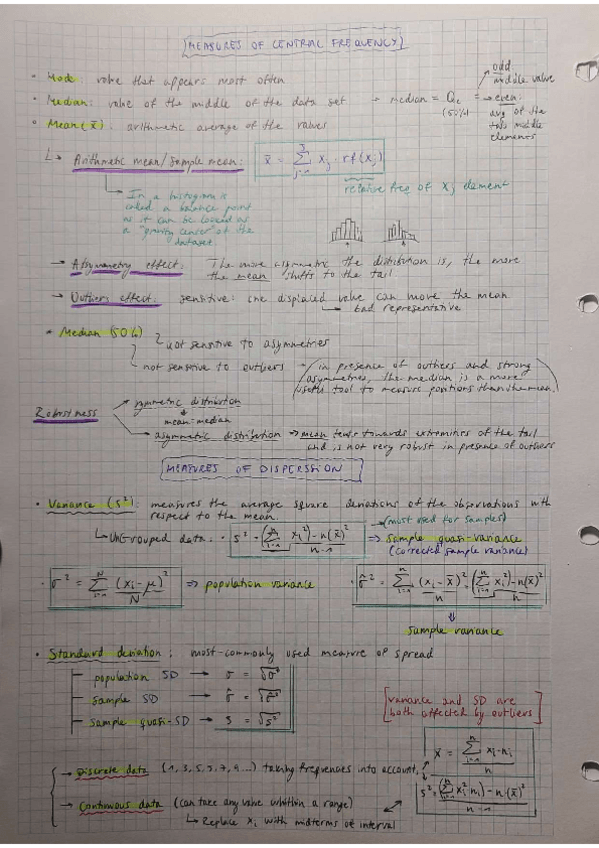 MEASURES OF CENTRAL FREQUENCY
• Mode: value that appears most often
• Median: value of the middle of the data set → median = Q₂ (50%)
odd: middle value
→ even: avg of the two middle elements
• Mean (x̄): arithmetic average of the values
↳ Arithmetic mean/sample mean: x̄ = Σ xj · rf(xj)
relative freq of xj element
↳ In a histogram is
called a balance point
as it can be looked as
a "gravity center" of the
dataset
→ Asymmetry effect: The more asymmetric the distribution is, the more
the mean shifts to the tail
→ Outliers effect: sensitive: one displaced value can move the mean
↳ bad representative
• Median (50%)
not sensitive to asymmetries
not sensitive to outliers
in presence of outliers and strong
asymmetries, the median is a more
useful tool to measure positions than the mean.
Robustness
symmetric distribution
mean=median
asymmetric distribution → mean tends towards extremities of the tail
and is not very robust in presence of outliers
MEASURES OF DISPERSSION
• Variance (s²): measures the average square deviations of the observations with
respect to the mean.
(most used for samples)
↳ UnGrouped data: • s² = (Σ xi²) - n(x̄)² / n-1 ⇒ sample quasi-variance
(corrected sample variance)
• σ² = Σ (xi - μ)² / N ⇒ population variance
• σ̂² = Σ (xi - x̄)² / n = (Σ xi²) - n(x̄)² / n
sample variance
• Standard deviation: most-commonly used measure of spread
population SD → σ = √σ²
sample SD → σ̂ = √σ̂²
sample quasi-SD → s = √s²
[variance and SD are
both affected by outliers]
x̄ = Σ xi·ni / n
→ Discrete data (1, 3, 5, 5, 7, 9...) taking frequencies into account
s² = (Σ xi² ni) - n·(x̄)² / n-1
→ Continuous data (can take any value whithin a range)
↳ Replace xi with midterms of interval